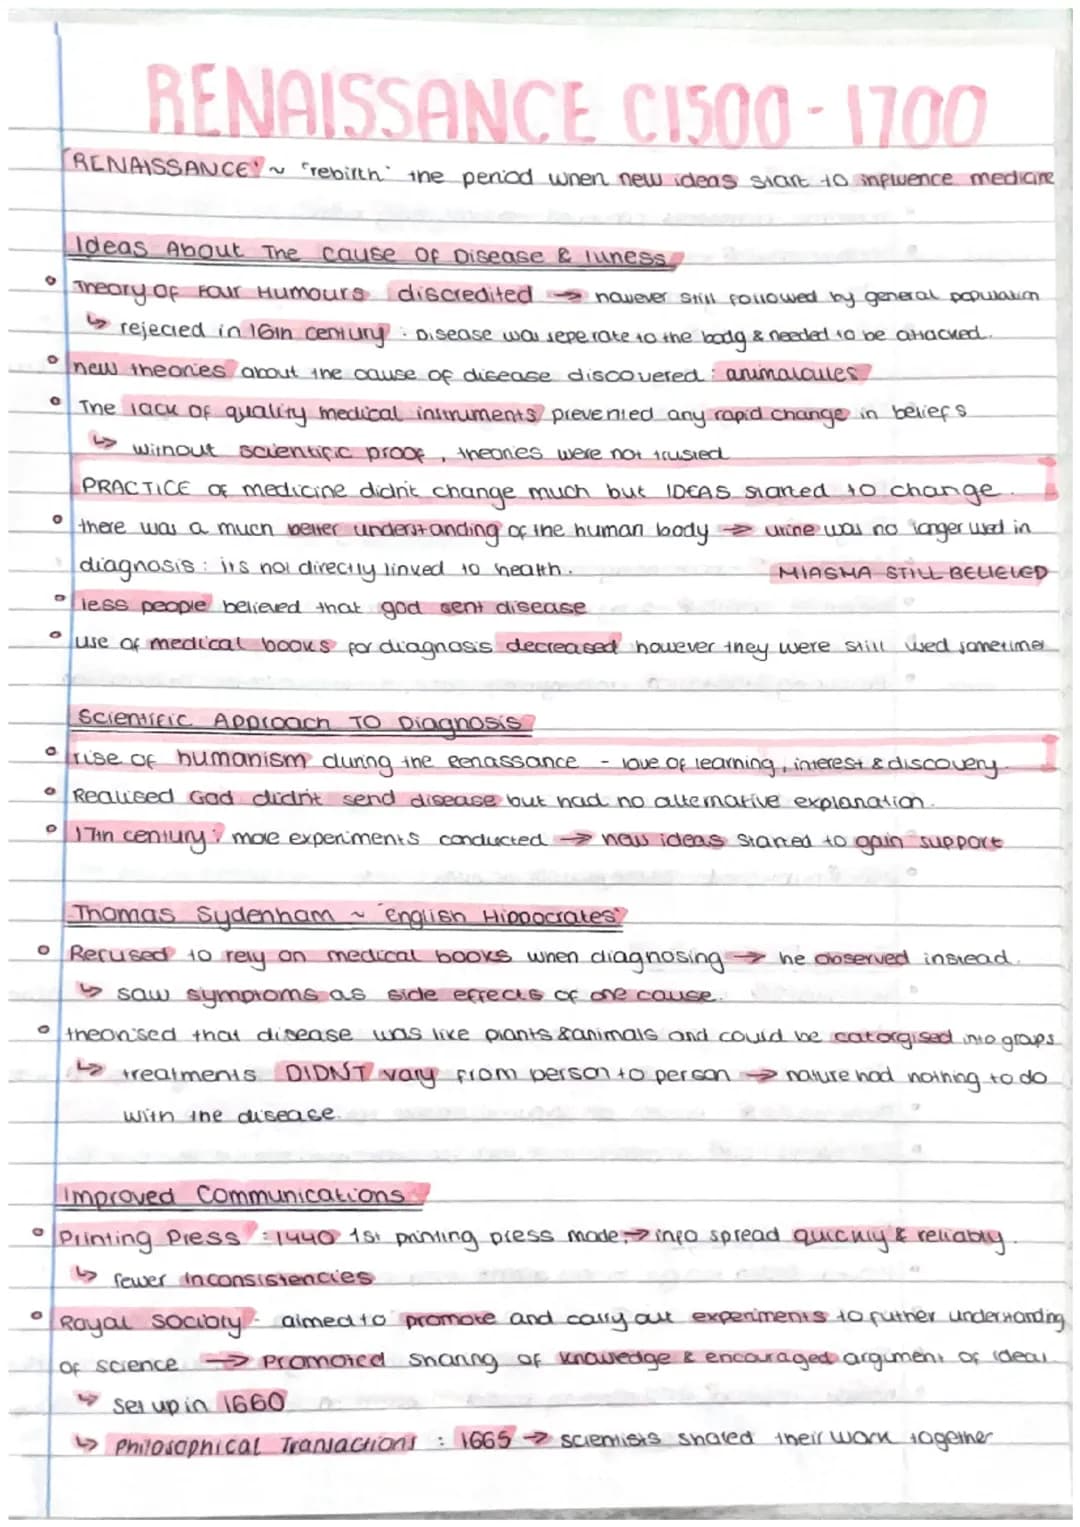 RENAISSANCE C1500 - 1700
'RENAISSANCE' ~ "rebirth" the period when new ideas start to influence medicine
Ideas About The Cause Of Disease & Illness
• Theory of Four Humours discredited → however still followed by general population
↳ rejected in 16th century : Disease was seperate to the body & needed to be attacked.
• new theories about the cause of disease discovered : animalcules
• The lack of quality medical instruments prevented any rapid change in beliefs
↳ without scientific proof, theories were not trusted
PRACTICE of medicine didn't change much but IDEAS started to change.
• there was a much better understanding of the human body → urine was no longer used in
diagnosis : its not directly linked to health. MIASMA STILL BELIEVED
• less people believed that god sent disease
• use of medical books for diagnosis decreased however they were still used sometimes
Scientific Approach To Diagnosis
• rise of humanism during the Renassance - love of learning, interest & discovery.
• Realised God didn't send disease but had no alternative explanation.
• 17th century : more experiments conducted → new ideas started to gain support
Thomas Sydenham ~ 'English Hippocrates'
• Refused to rely on medical books when diagnosing → he observed instead.
↳ saw symptoms as side effects of one cause.
• theorised that disease was like plants & animals and could be catorgised into groups
↳ treatments DIDNT vary from person to person → nature had nothing to do
with the disease.
Improved Communications
• Printing Press : 1440 1st printing press made, → info spread quickly & reliably.
↳ fewer inconsistencies
• Royal Society - aimed to promote and carry out experiments to futher understanding
of science → Promoted sharing of knowledge & encouraged argument of ideas.
↳ Set up in 1660
↳ Philosophical Transactions : 1665 → scientists shared their work together